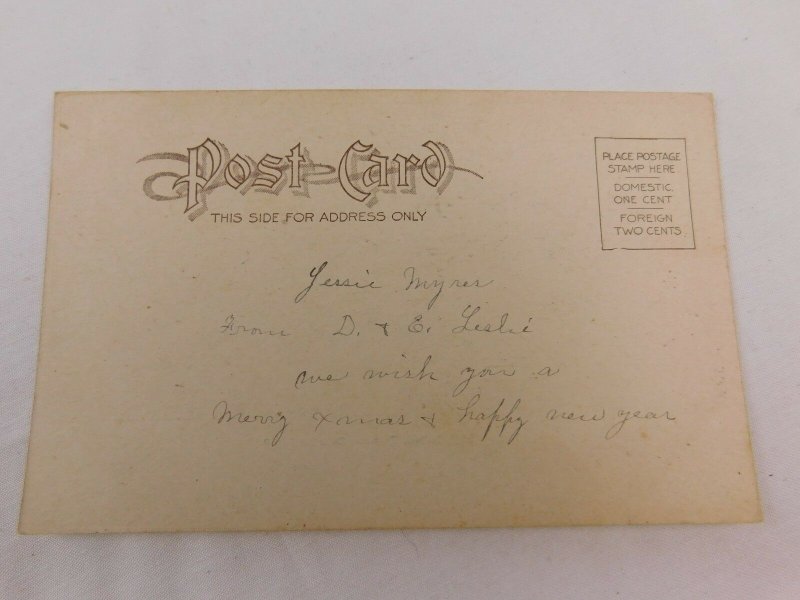 Post Card
THIS SIDE FOR ADDRESS ONLY
PLACE POSTAGE
STAMP HERE
DOMESTIC
ONE CENT
FOREIGN
TWO CENTS
Jessie Myres
From D. & E. Leslie
we wish you a
Merry Xmas & happy new year